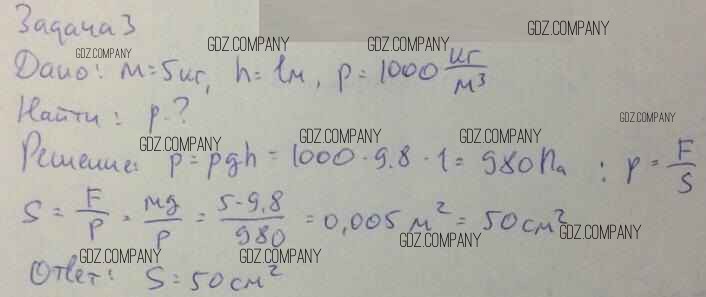 Задача 3
GDZ.COMPANY GDZ.COMPANY GDZ.COMPANY GDZ.COMPANY
Дано: m = 5 кг, h = 1 м, ρ = 1000 кг/м³
Найти: p - ?
GDZ.COMPANY GDZ.COMPANY GDZ.COMPANY GDZ.COMPANY
Решение: p = ρgh = 1000 · 9,8 · 1 = 980 Па ; p = F/S
S = F/p = mg/p = 5 · 9,8/980 = 0,005 м² = 50 см²
GDZ.COMPANY GDZ.COMPANY GDZ.COMPANY GDZ.COMPANY
Ответ: S = 50 см²